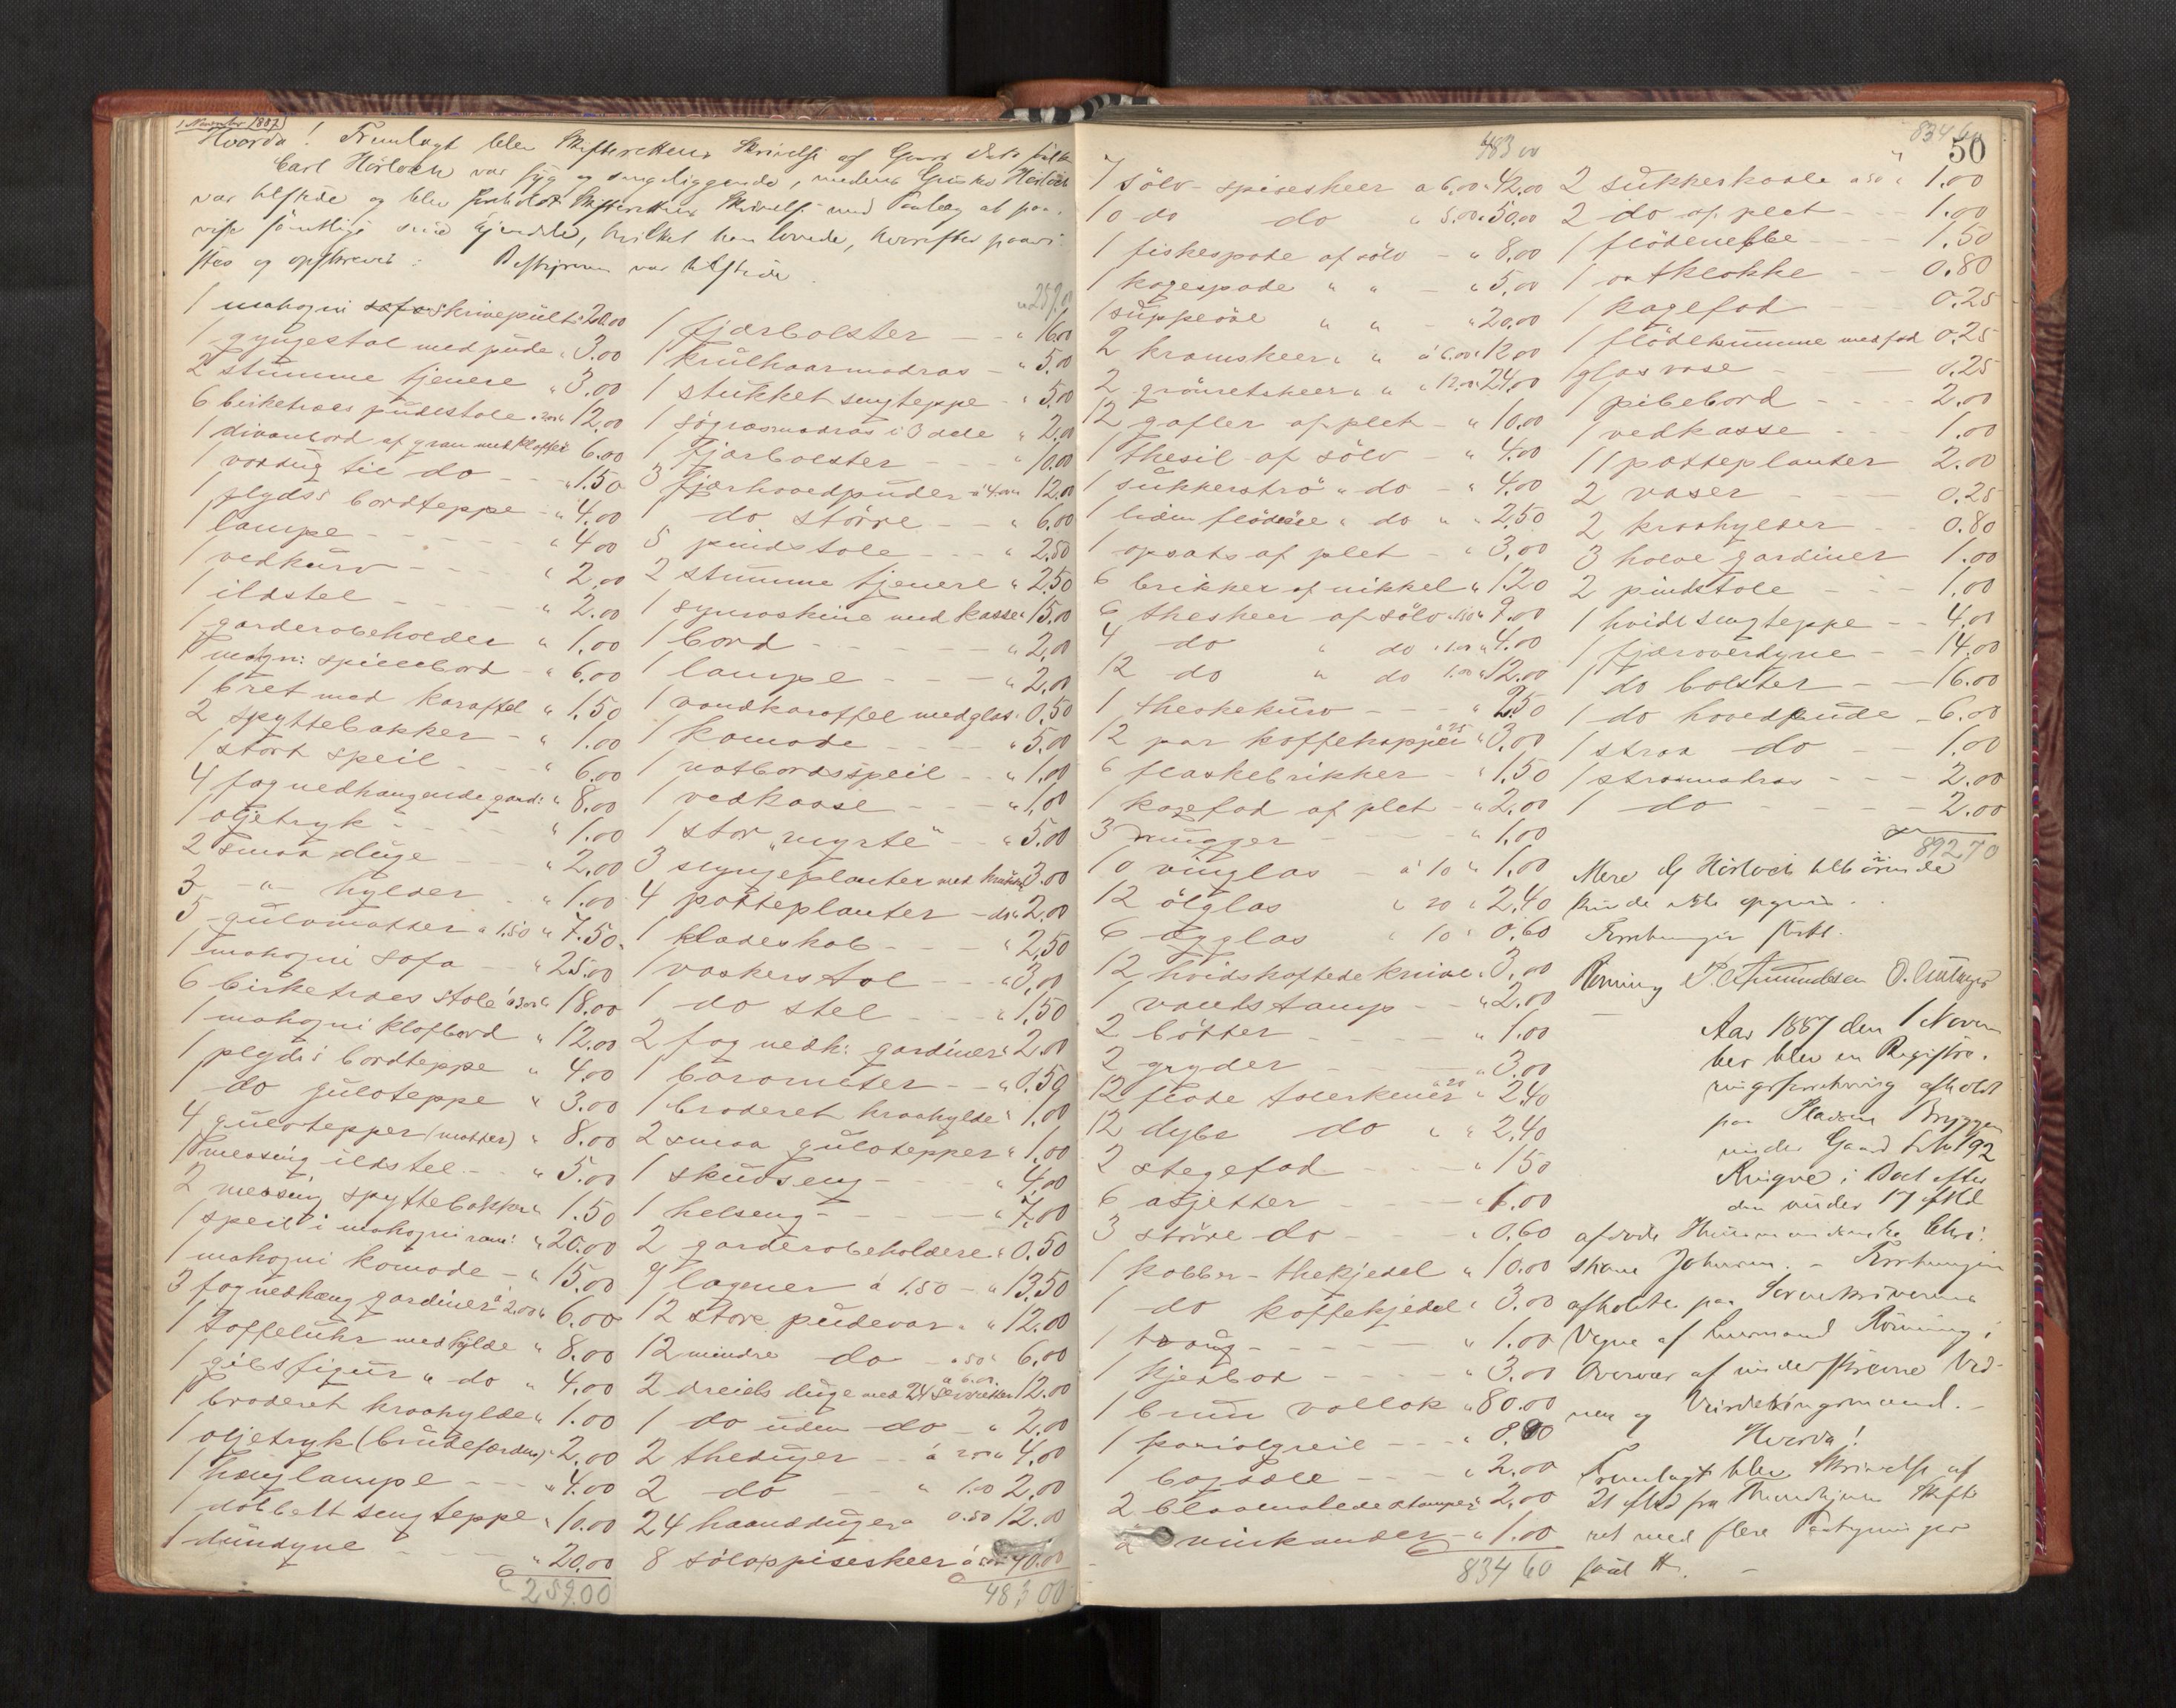 1 November 1887
Hvorda! Fremlagt blev Skifterettens Skrivelse af Gaars Dato
Carl Hörloch var syg og sengeliggende, medens Hörloch
var tilstede og blev Skifterettens Skrivelse med Paalæg at paa-
vise samtlige sine Ejendele, hvilket han lovede, hvorefter paavi-
stes og opskreves: Bestyreren var tilstede
1 mahogni skrivepült " 20.00
1 gyngestol med püde " 3.00
2 stümme tjenere " 3.00
6 birketræs püdestole " 12.00
1 divanbord af gran med klaffer 6.00
1 voxdüg til do - - " 1.50
1 plyds: bordteppe - " 4.00
1 lampe - - - - " 4.00
1 vedkürv - - - " 2.00
1 ildstel - - - - " 2.00
1 garderobeholder " 1.00
1 mogn: spillebord - " 6.00
1 bret med karaffel " 1.50
2 spyttebakker - " 1.00
1 stort speil - - - " 6.00
4 fag nedhængende gard: " 8.00
1 oljetryk - - - - " 1.00
2 smaa düge - - - " 2.00
3 - " - hylder - " 1.00
5 gülvmatter à 1.50 " 7.50
1 mahogni sofa - " 25.00
6 birketræes stole à 3.00 " 18.00
1 mahogni klafbord " 12.00
1 plyds: bordteppe " 4.00
1 do gülvteppe " 3.00
4 gülvtepper (matter) " 8.00
1 messing ildstel - - " 5.00
2 messing spyttebakker " 1.50
1 speil i mahogni ram: " 20.00
1 mahogni komode - " 15.00
3 fag nedhæng gardiner à 2.00 " 6.00
1 taffelühr med hylde " 8.00
1 gibsfigur " do " 4.00
1 broderet kraahylde " 1.00
1 oljetryk (brüdefærden) " 2.00
1 hænglampe - - " 4.00
1 dobbelt sengteppe " 10.00
1 dündyne - - - " 20.00
259.00
" 259.00
1 fjærbolster - - " 16.00
1 krülhaarmadras - " 5.00
1 stükket sengteppe - " 5.00
1 sögræsmadras i 3 dele " 2.00
1 Fjærbolster - - - " 10.00
3 fjærhovedpüder à 4.00 " 12.00
1 do. större - - " 6.00
5 pindstole - - - " 2.50
2 stümme tjenere " 2.50
1 symaskine med kasse " 15.00
1 bord - - - - - " 2.00
1 lampe - - - - " 2.00
1 vandkaraffel med glas " 0.50
1 komode - - - " 5.00
1 natbordsspeil - - " 1.00
1 vedkasse - - - " 1.00
1 stor "myrte" - - " 5.00
3 slyngeplanter med krükker 3.00
4 potteplanter - do " 2.00
1 kladeskab - - - " 2.50
1 vaskerstol - - - " 3.00
1 do stel - - - " 1.50
2 fag nedh: gardiner " 2.00
1 barometer - - " 0.50
1 broderet kraahylde " 1.00
2 smaa gülvtepper " 1.00
1 skudseng - - - - " 4.00
1 helseng - - - - - " 7.00
2 garderobeholdere " 0.50
9 lagener à 1.50 - " 13.50
12 store püdevar " " 12.00
12 mindre do - à 50 " 6.00
2 dreiels düge med 24 servietter à 6.00 12.00
1 do üden do - " 2.00
2 thedüger - - à 2.00 " 4.00
2 do - - " 1.00 2.00
24 haanddüger à 0.50 12.00
8 sölvspiseskeer à 5.00 40.00
483.00
483 00
7 sölv-spiseskeer à 6.00 " 42.00
10 do do " 5.00 " 50.00
1 fiskespade af sölv - " 8.00
1 kagespade " " - " 5.00
1 süppeöse " " - " 20.00
2 kramskeer " " à 6.00 " 12.00
2 grönretskeer " " " 12.00 " 24.00
12 gafler af plet - " 10.00
1 thesil af sölv - " 4.00
1 sükkerströ " do - " 4.00
1 liden flödeöse " do " " 2.50
1 opsats af plet - " 3.00
6 brikker af nikkel " 1.20
6 theskeer af sölv 1.50 " 9.00
4 do " do " 1.00 " 4.00
12 do " do 1.00 " 12.00
1 theskekürv - - - " 2.50
12 par kaffekopper à 25 " 3.00
6 flaskebrikker - - " 1.50
1 kagefad af plet - " 2.00
3 mügger - - - " 1.00
10 vinglas - à 10 " 1.00
12 ölglas " 20 " 2.40
6 ægglas " 10 " 0.60
12 hvidskaftede knive " 3.00
1 vandstamp - - " 2.00
2 bötter - - - - " 1.00
2 gryder - - - - " 3.00
12 flade tallerkener à 20 " 2.40
12 dybe do " " 2.40
2 stegefad - - - " 1.50
6 asjetter - - - - " 1.00
3 större do - - - " 0.60
1 kobber-thekjedel " 10.00
1 do kaffekjedel " 3.00
1 traug - - - - - " 1.00
1 kjödbad - - - - " 3.00
1 brün vallak " 80.00
1 kariolgreie - - - " 8.00
1 bogsæle - - - " 2.00
2 blaamalede stamper " 2.00
2 vinkander - " 1.00
834 60
834 60
50
2 sükkerskaale à 50 " 1.00
2 do af plet - - - 1.00
1 flödenebbe - - - 1.50
1 ostklokke - - - 0.80
1 kagefad - - - 0.25
1 flödekümme med fad 0.25
1 glasvase - - - 0.25
1 pibebord - - - - 2.00
1 vedkasse - - - 1.00
11 potteplanter 2.00
2 vaser - - - - 0.25
2 kraahylder - - 0.80
3 halve gardiner 1.00
2 pindstole - - - 1.00
1 hvidt sengteppe - - 4.00
1 fjæroverdyne - - 14.00
1 do bolster - - 16.00
1 do hovedpüde - 6.00
1 straa do - - 1.00
1 straamadras - - - 2.00
1 do - - - - - 2.00
892 70
Mere Hörloch tilhörende
kunde ikke opgives.
Forretningen sluttet.
Rönning P. Amundsen
Aar 1887 den 1 Novem
ber blev en Registre-
ringsforretning afholdt
paa Pladsen Bryggen
under Gaard L No 192
Ringve i Boet efter
den under 17 f Md
afdöde Chri-
stiane Johnsen. - Forretningen
afholdtes paa Sorenskriverens
Vegne af Lensmand Rönning i
Overvær af underskrevne Vid-
ner og Vurderingsmænd. -
Hvorda!
Fremlagt blev Skrivelse af
21 f Md fra Trondhjems Skifte
ret med flere Paategninger
saal H. -